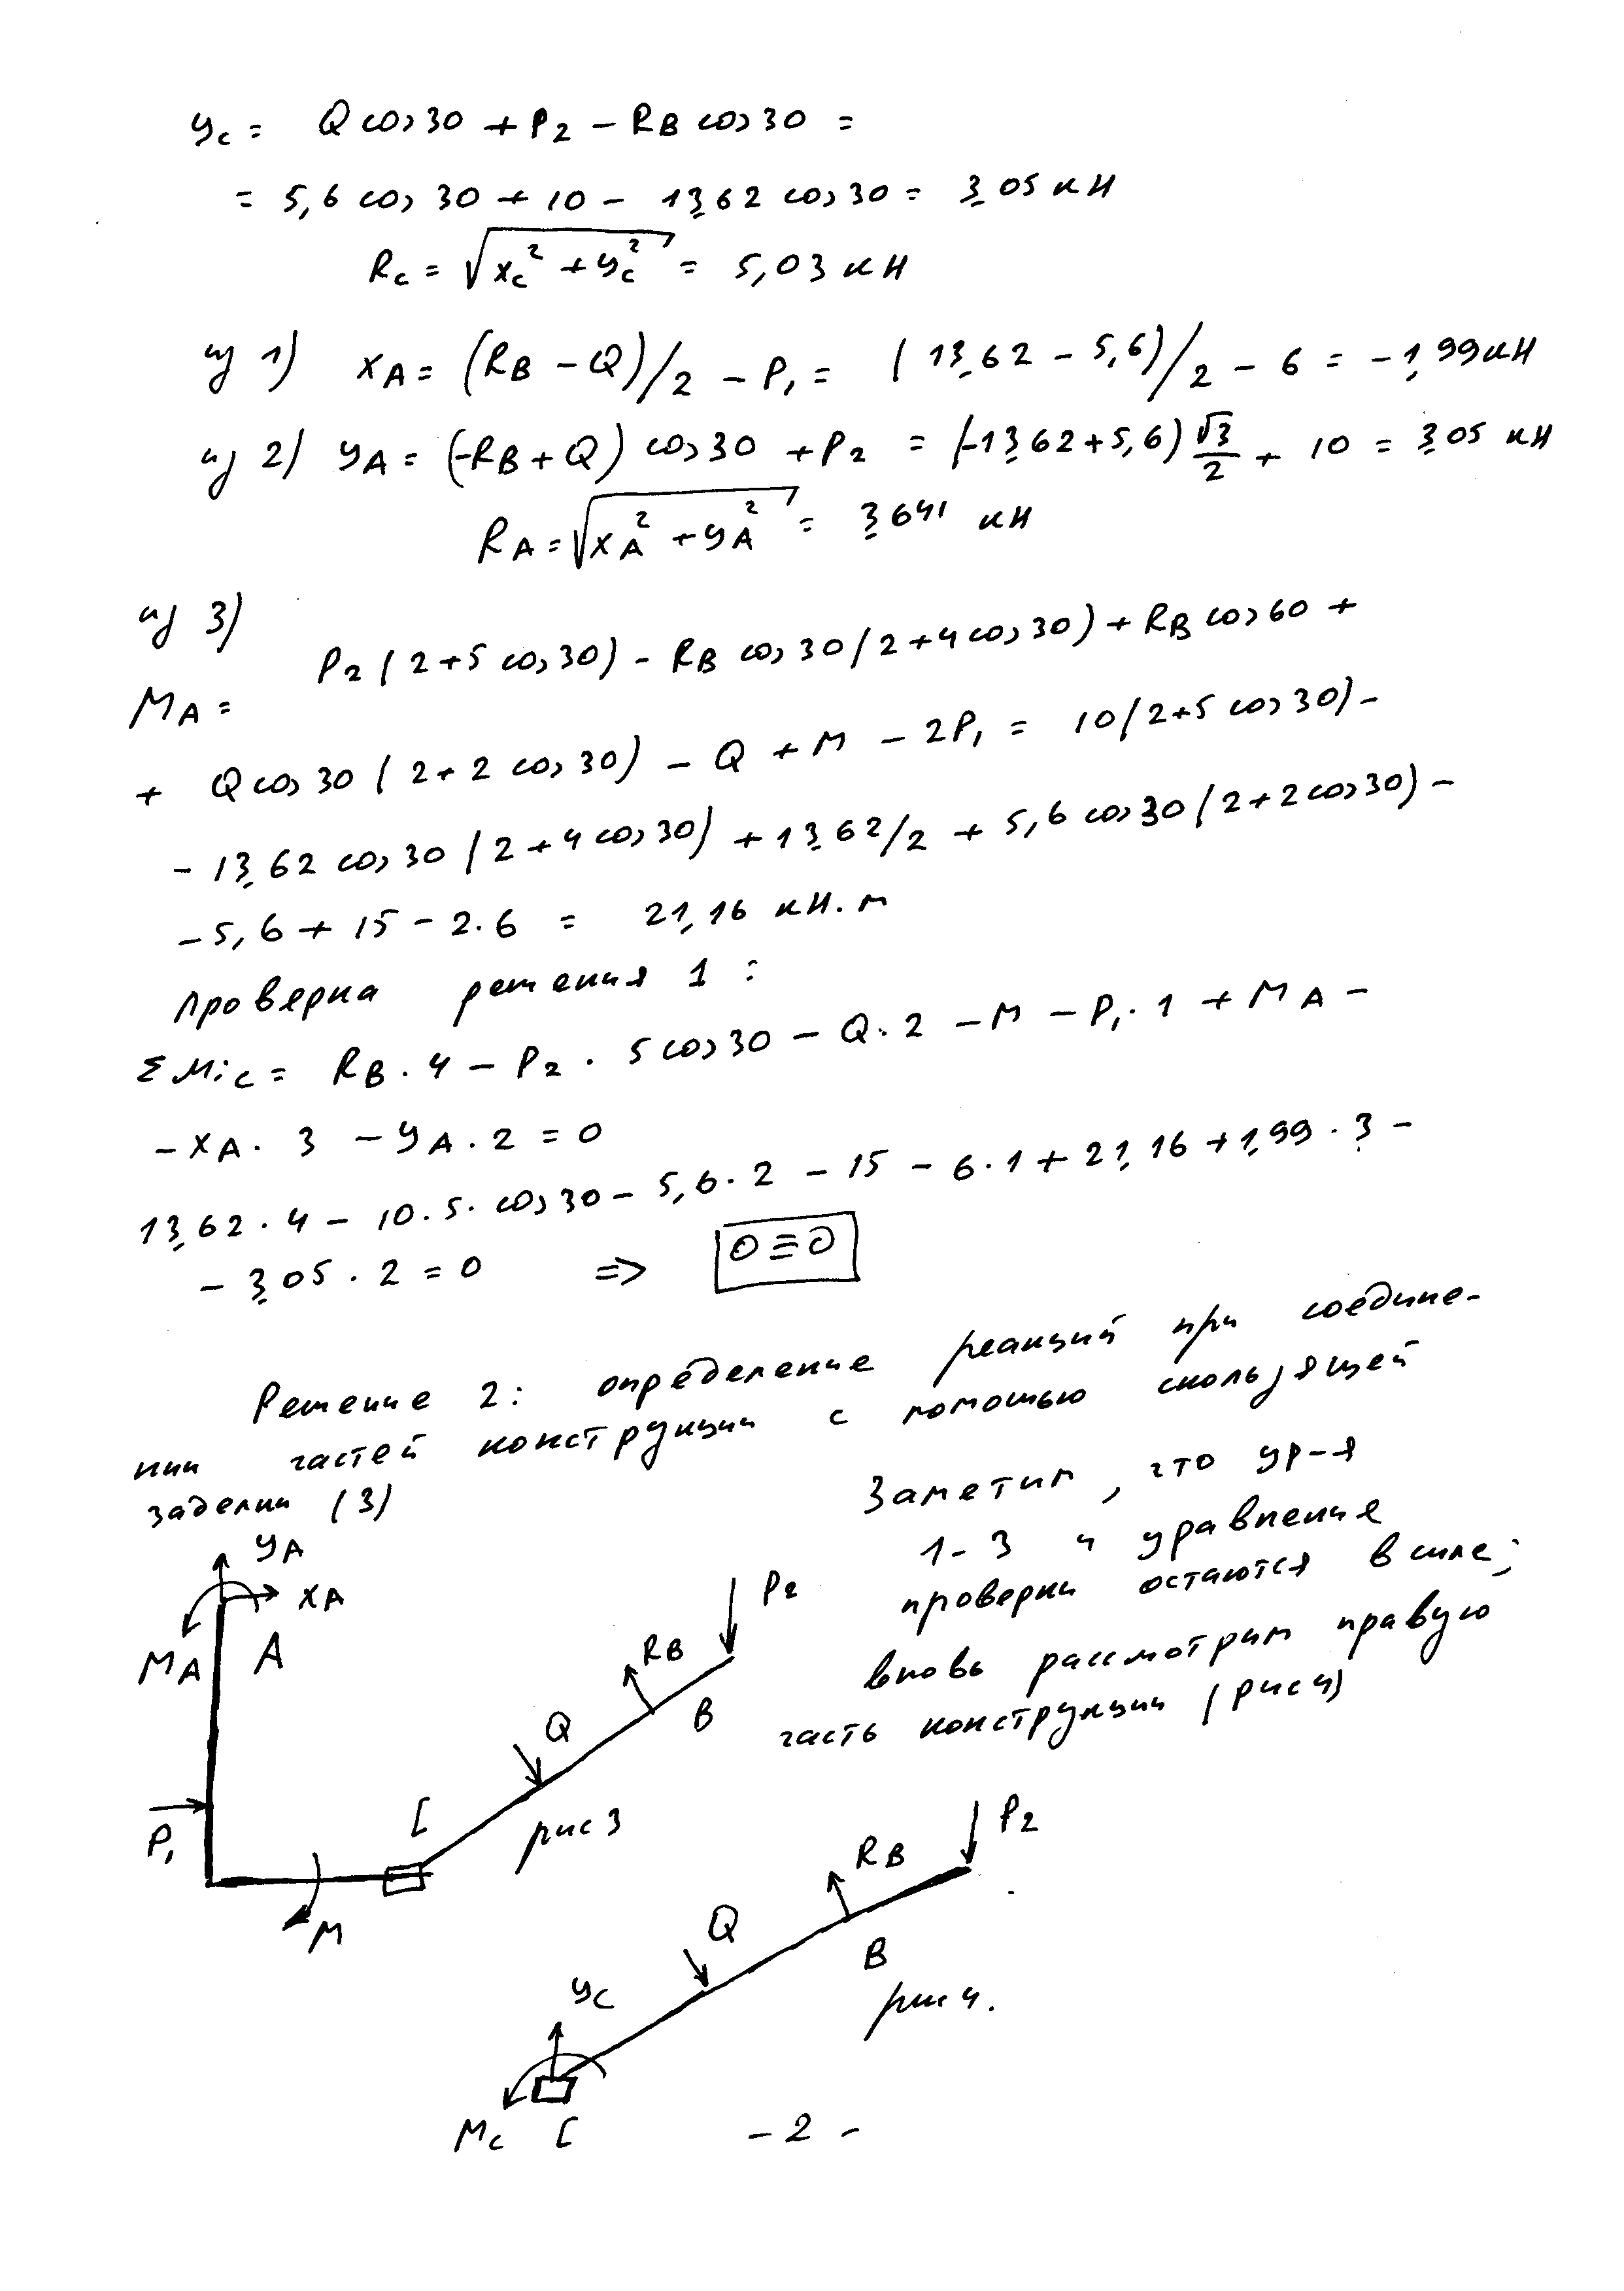 Yc = Q cos 30 + P2 – RB cos 30 =
= 5,6 cos 30 + 10 – 13,62 cos 30 = 3,05 кН
Rc = √(xc² + yc²) = 5,03 кН
из 1) XA = (RB – Q)/2 – P1 = (13,62 – 5,6)/2 – 6 = –1,99 кН
из 2) YA = (–RB + Q) cos 30 + P2 = (–13,62 + 5,6) √3/2 + 10 = 3,05 кН
RA = √(XA² + YA²) = 3,641 кН
из 3)
MA = P2 (2 + 5 cos 30) – RB cos 30 (2 + 4 cos 30) + RB cos 60 +
+ Q cos 30 (2 + 2 cos 30) – Q + M – 2P1 = 10 (2 + 5 cos 30) –
– 13,62 cos 30 (2 + 4 cos 30) + 13,62/2 + 5,6 cos 30 (2 + 2 cos 30) –
– 5,6 + 15 – 2·6 = 21,16 кН·м
Проверка решения 1:
ΣMic = RB · 4 – P2 · 5 cos 30 – Q · 2 – M – P1 · 1 + MA –
– XA · 3 – YA · 2 = 0
13,62 · 4 – 10 · 5 · cos 30 – 5,6 · 2 – 15 – 6 · 1 + 21,16 + 1,99 · 3 –
– 3,05 · 2 = 0 => 0 ≡ 0
Решение 2: определение реакций при соедине-
нии частей конструкции с помощью скользящей
заделки (3)
Заметим, что ур-я
1-3 и уравнение
проверки остаются в силе;
вновь рассмотрим правую
часть конструкции (рис 4)
YA
XA
MA
A
P2
RB
B
Q
C
P1
M
рис 3
P2
RB
Q
B
рис 4.
Yc
Mc
C
– 2 –